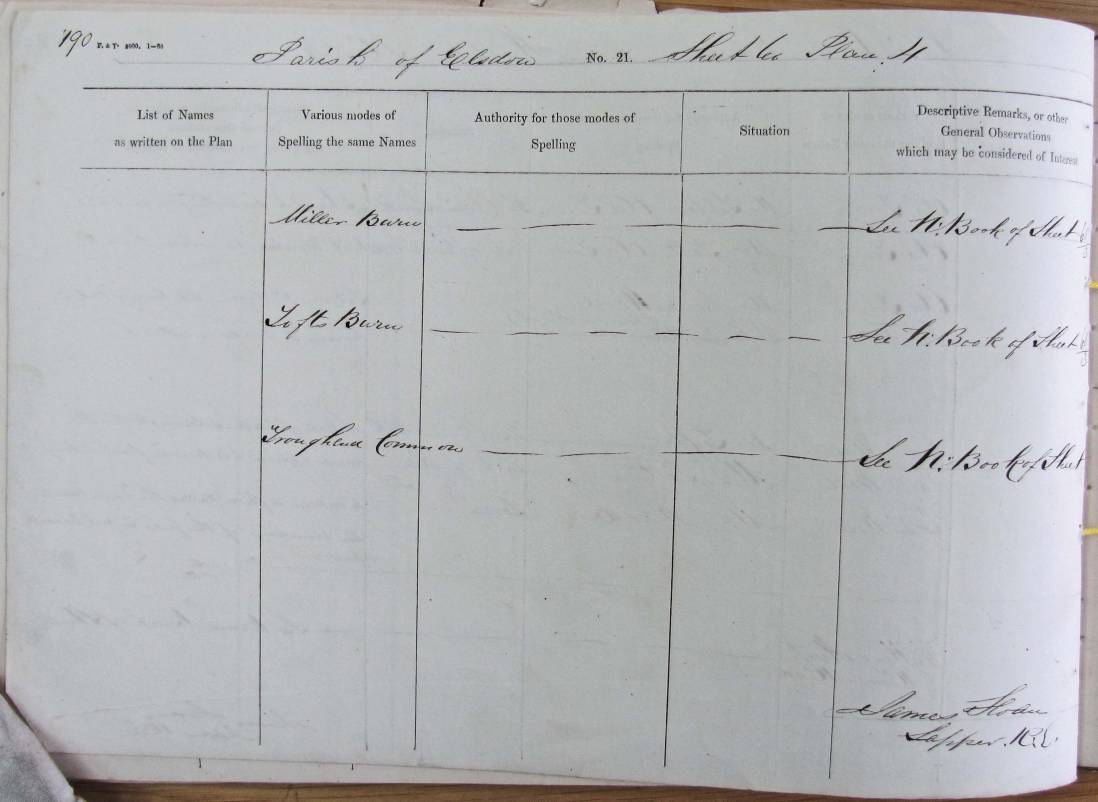 190 Parish of Elsdon No. 21. Sheet 60 Plan 4
List of Names
as written on the Plan
Various modes of
Spelling the same Names
Authority for those modes of
Spelling
Situation
Descriptive Remarks, or other
General Observations
which may be considered of Interest
Miller Burn — — — — — — — See N. Book of Sheet
Lofts Burn — — — — — — — See N. Book of Sheet
Troughend Common — — — — — See N. Book of Sheet
James Sloan
Sapper. R.E.